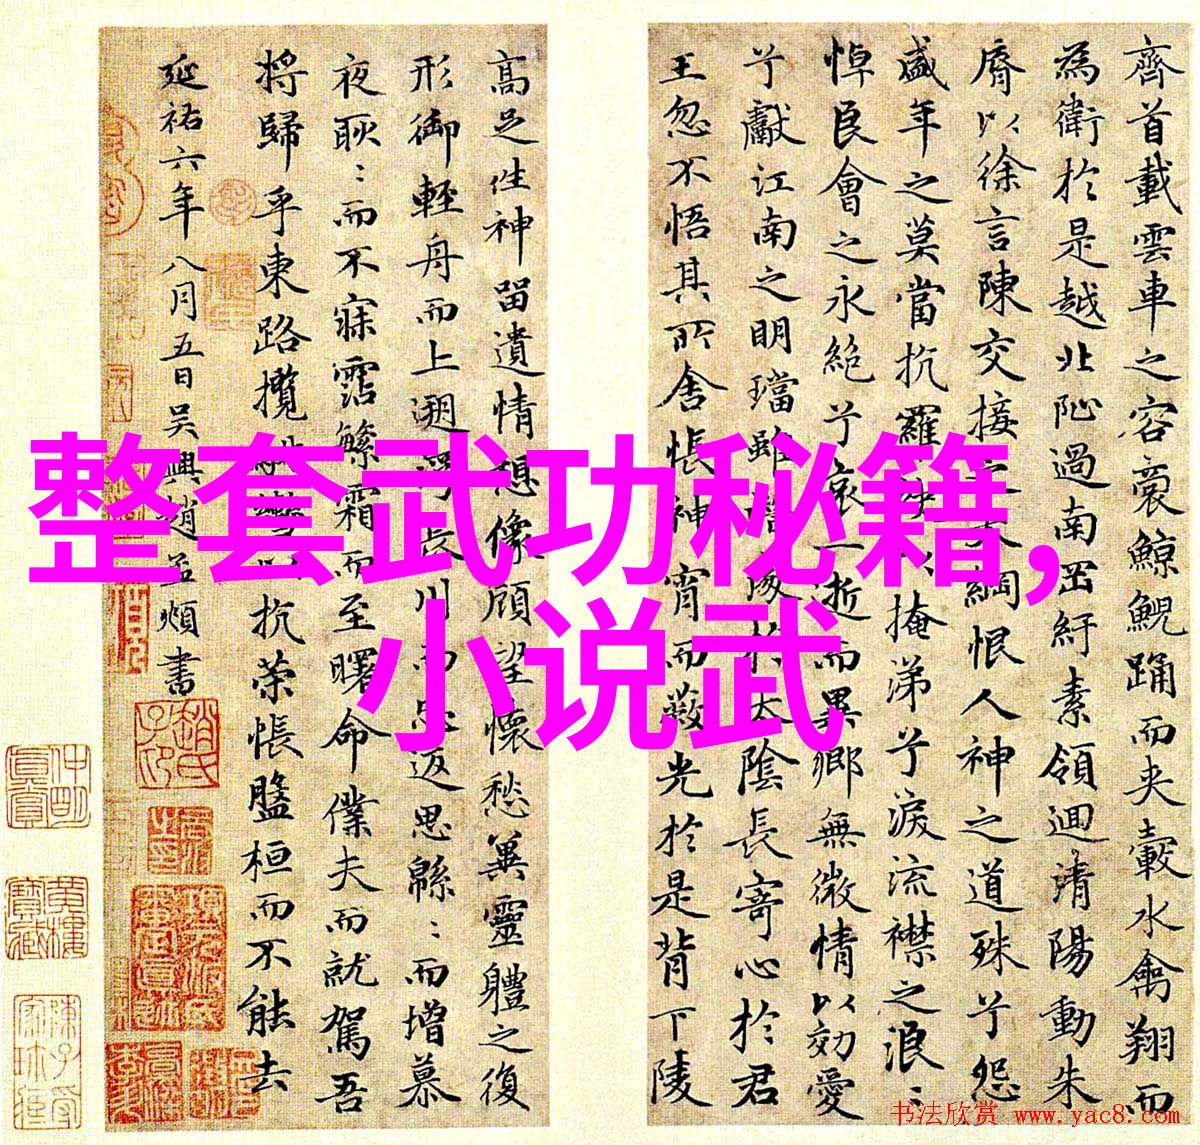 齊首載雲車之容裔鯨鯢踊而夹轂水禽翔而
為衛於是越北沚過南岡紆素領迴清陽動朱
脣以徐言陳交接之大綱恨人神之道殊兮怨
盛年之莫當抗羅袂以掩涕兮淚流襟之浪:
悼良會之永絕兮哀一逝而異鄉無微情以効愛
兮獻江南之明璫雖潛處於太陰長寄心於君
王忽不悟其所舍悵神宵而蔽光於是背下陵
高足往神留遺情想像顧望懷愁冀靈體之復
形御輕舟而上遡浮長川而忘返思緜:而增慕
夜耿:而不寐霑繁霜而至曙命僕夫而就駕吾
將歸乎東路攬騑轡以抗策悵盤桓而不能去
延祐六年八月五日吳興趙孟頫書
整套武功秘籍,
小说武
书法欣赏 www.yac8.com